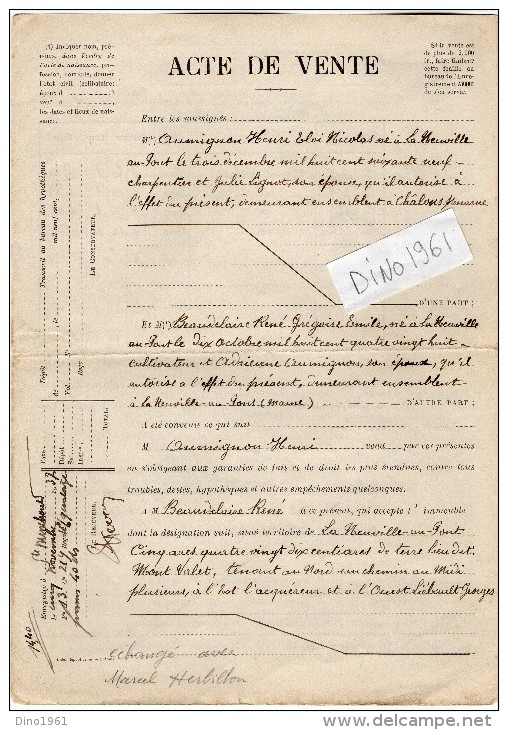 (1) Indiquer nom, pré-
noms, dans l'ordre de
l'acte de naissance, pro-
fession, domicile, donner
l'état civil (célibataire;
époux d
veuf d
les dates et lieux de nais-
sance.
ACTE DE VENTE
Si la vente est
de plus de 5.000
fr., faire timbrer
cette feuille au
bureau de l'Enre-
gistrement AVANT
de s'en servir.
Entre les soussignés :
M(1) Aumignon Henri Eloi Nicolas né à La Neuville
au-Pont le trois décembre mil huit cent soixante neuf -
charpentier et Julie Lignot, son épouse, qu'il autorise à
l'effet du présent, demeurant ensemblent à Châlons s/marne
DINO1961
D'UNE PART ;
Et M(1) Beaudelaire René Grégoire Emile, né à La Neuville
au Pont le dix Octobre mil huit cent quatre vingt huit -
cultivateur et Adrienne Aumignon, son épouse, qu'il
autorise a l'effet du présent, demeurant ensemblent
à la Neuville-au-Pont (marne) D'AUTRE PART ;
A été convenu ce qui suit
M. Aumignon Henri vend par ces présentes
en s'obligeant aux garanties de fait et de droit les plus étendues, contre tous
troubles, dettes, hypothèques et autres empêchements quelconques.
A M. Beaudelaire René à ce présent, qui accepte l'immeuble
dont la désignation suit, sis sur territoire de La Neuville-au-Pont
Cinq ares quatre vingt dix centiares de terre lieu dit
Mont Valet, tenant au Nord un chemin au Midi
plusieurs, à l'Est l'acquéreur et à l'Ouest Liébault Georges
echangé avec
Marcel Herbillon
Transcrit au bureau des hypothèques
mil neuf cent
LE CONSERVATEUR,
Dépôt
Vol.
Reçu
Taxe
Dépôt
TOTAL
Enregistré à Ste Menehould
le cinq Novembre 1937
LE RECEVEUR,
1440
Dino1961
www.delcampe.net